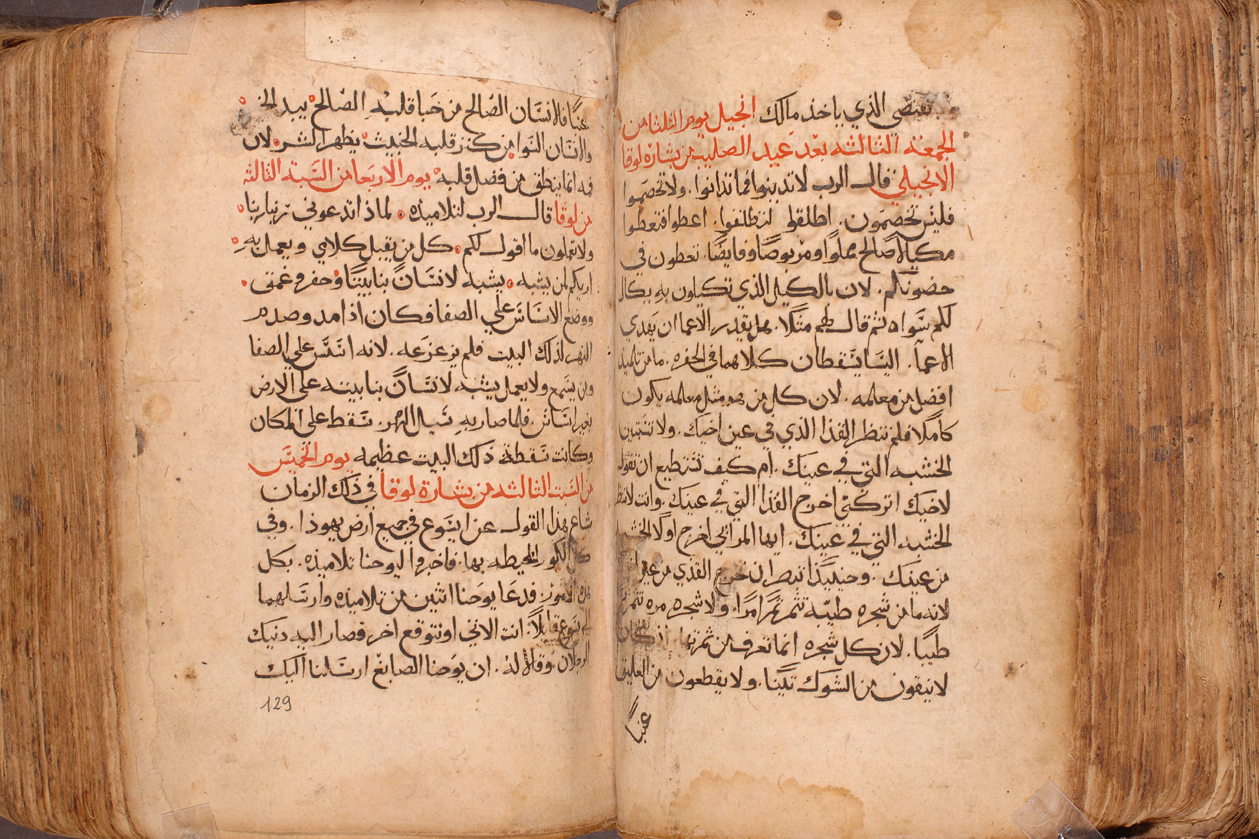 تقتضى الذي ياخذ مالك انجيل يوم الثلثا من
الجمعه الثالثه بعد عيد الصليب من بشارة لوقا
الانجيلي قال الرب لا تدينوا فما تدانوا. ولا تخصموا
فليس تخصمون. اطلقوا لتطلقوا. اعطوا فتعطوا
مكيالاً صالح مملوا ومربوصًا وفايضًا. تعطون في
حضونكم. لان بالكيل الذي تكيلون به يكال
لكم سواه ثم قال لهم متلا. هل يقدر الاعما ان يهدي
الاعما. اليسا يسقطان كلاهما في الحفره. ما من تلميد
افضل من معلمه. لان كل من هو مثل معلمه يكون
كاملاً فلم تنظر القذا الذي في عين اخيك. ولا تتبين
الخشبه التي في عينك. ام كيف تستطيع ان تقول
لاخيك اتركني اخرج القذا التي في عينك. وانت لا تنظر
الخشبه التي في عينك. ايها المرائي اخرج اولا الخشبه
من عينك. وحينيذًا تبصر ان تخرج القذي من عين
لانه ما من شجره طيبه تثمر ثمرًا مرًا. ولا شجره مره تثمر
طيبا. لان كل شجره انما تعرف من ثمرتها اذ كان
لا ينقون من الشوك تينا. ولا يقطعون من العليق
عنبًا
عنبًا فالانسان الصالح من خبا قلبه الصالح يبدي الخير
والانسان السوا من كنز قلبه الخبيث يظهر الشر لان
فمه انما ينطق من فضل قلبه يوم الاربعا من السبة الثالثه
من لوقا قال الرب لتلاميذه. لماذا تدعوني رباربنا
ولا تعملون ما اقول لكم. كل من يقبل كلامي ويعمل به
اريكم لمن يشبه. يشبه لانسانً بنا بيتًا وحفر وعمق.
ووضع الاساس علي الصفا فكان اذا مد وصدم
النهر لذلك البيت فلم يزعزعه. لانه اسس علي الصفا
ومن يسمع ولا يعمل يشبه لانسانً بنا بيته على الارض
بغير اساس. فلما صار به سيل النهر. سقط على المكان
وكانت سقطة ذلك البيت عظيمه يوم الخميس
من السبت الثالثه من بشارة لوقا في ذلك الزمان
شاع هذا القول عن ايسوع في جميع ارض يهوذا. وفي
كل الكور المحيطه بها. فاخبروا اليوحنا تلاميذه. بكل
هذه الامور فدعا يوحنا اثنين من تلاميذه وارسلهما
الي يسوع قايلاً. انت الاتي او نتوقع اخر فصار اليه دنيك
الرجلان وقالا له. ان يوحنا الصابغ ارسلنا اليك
129